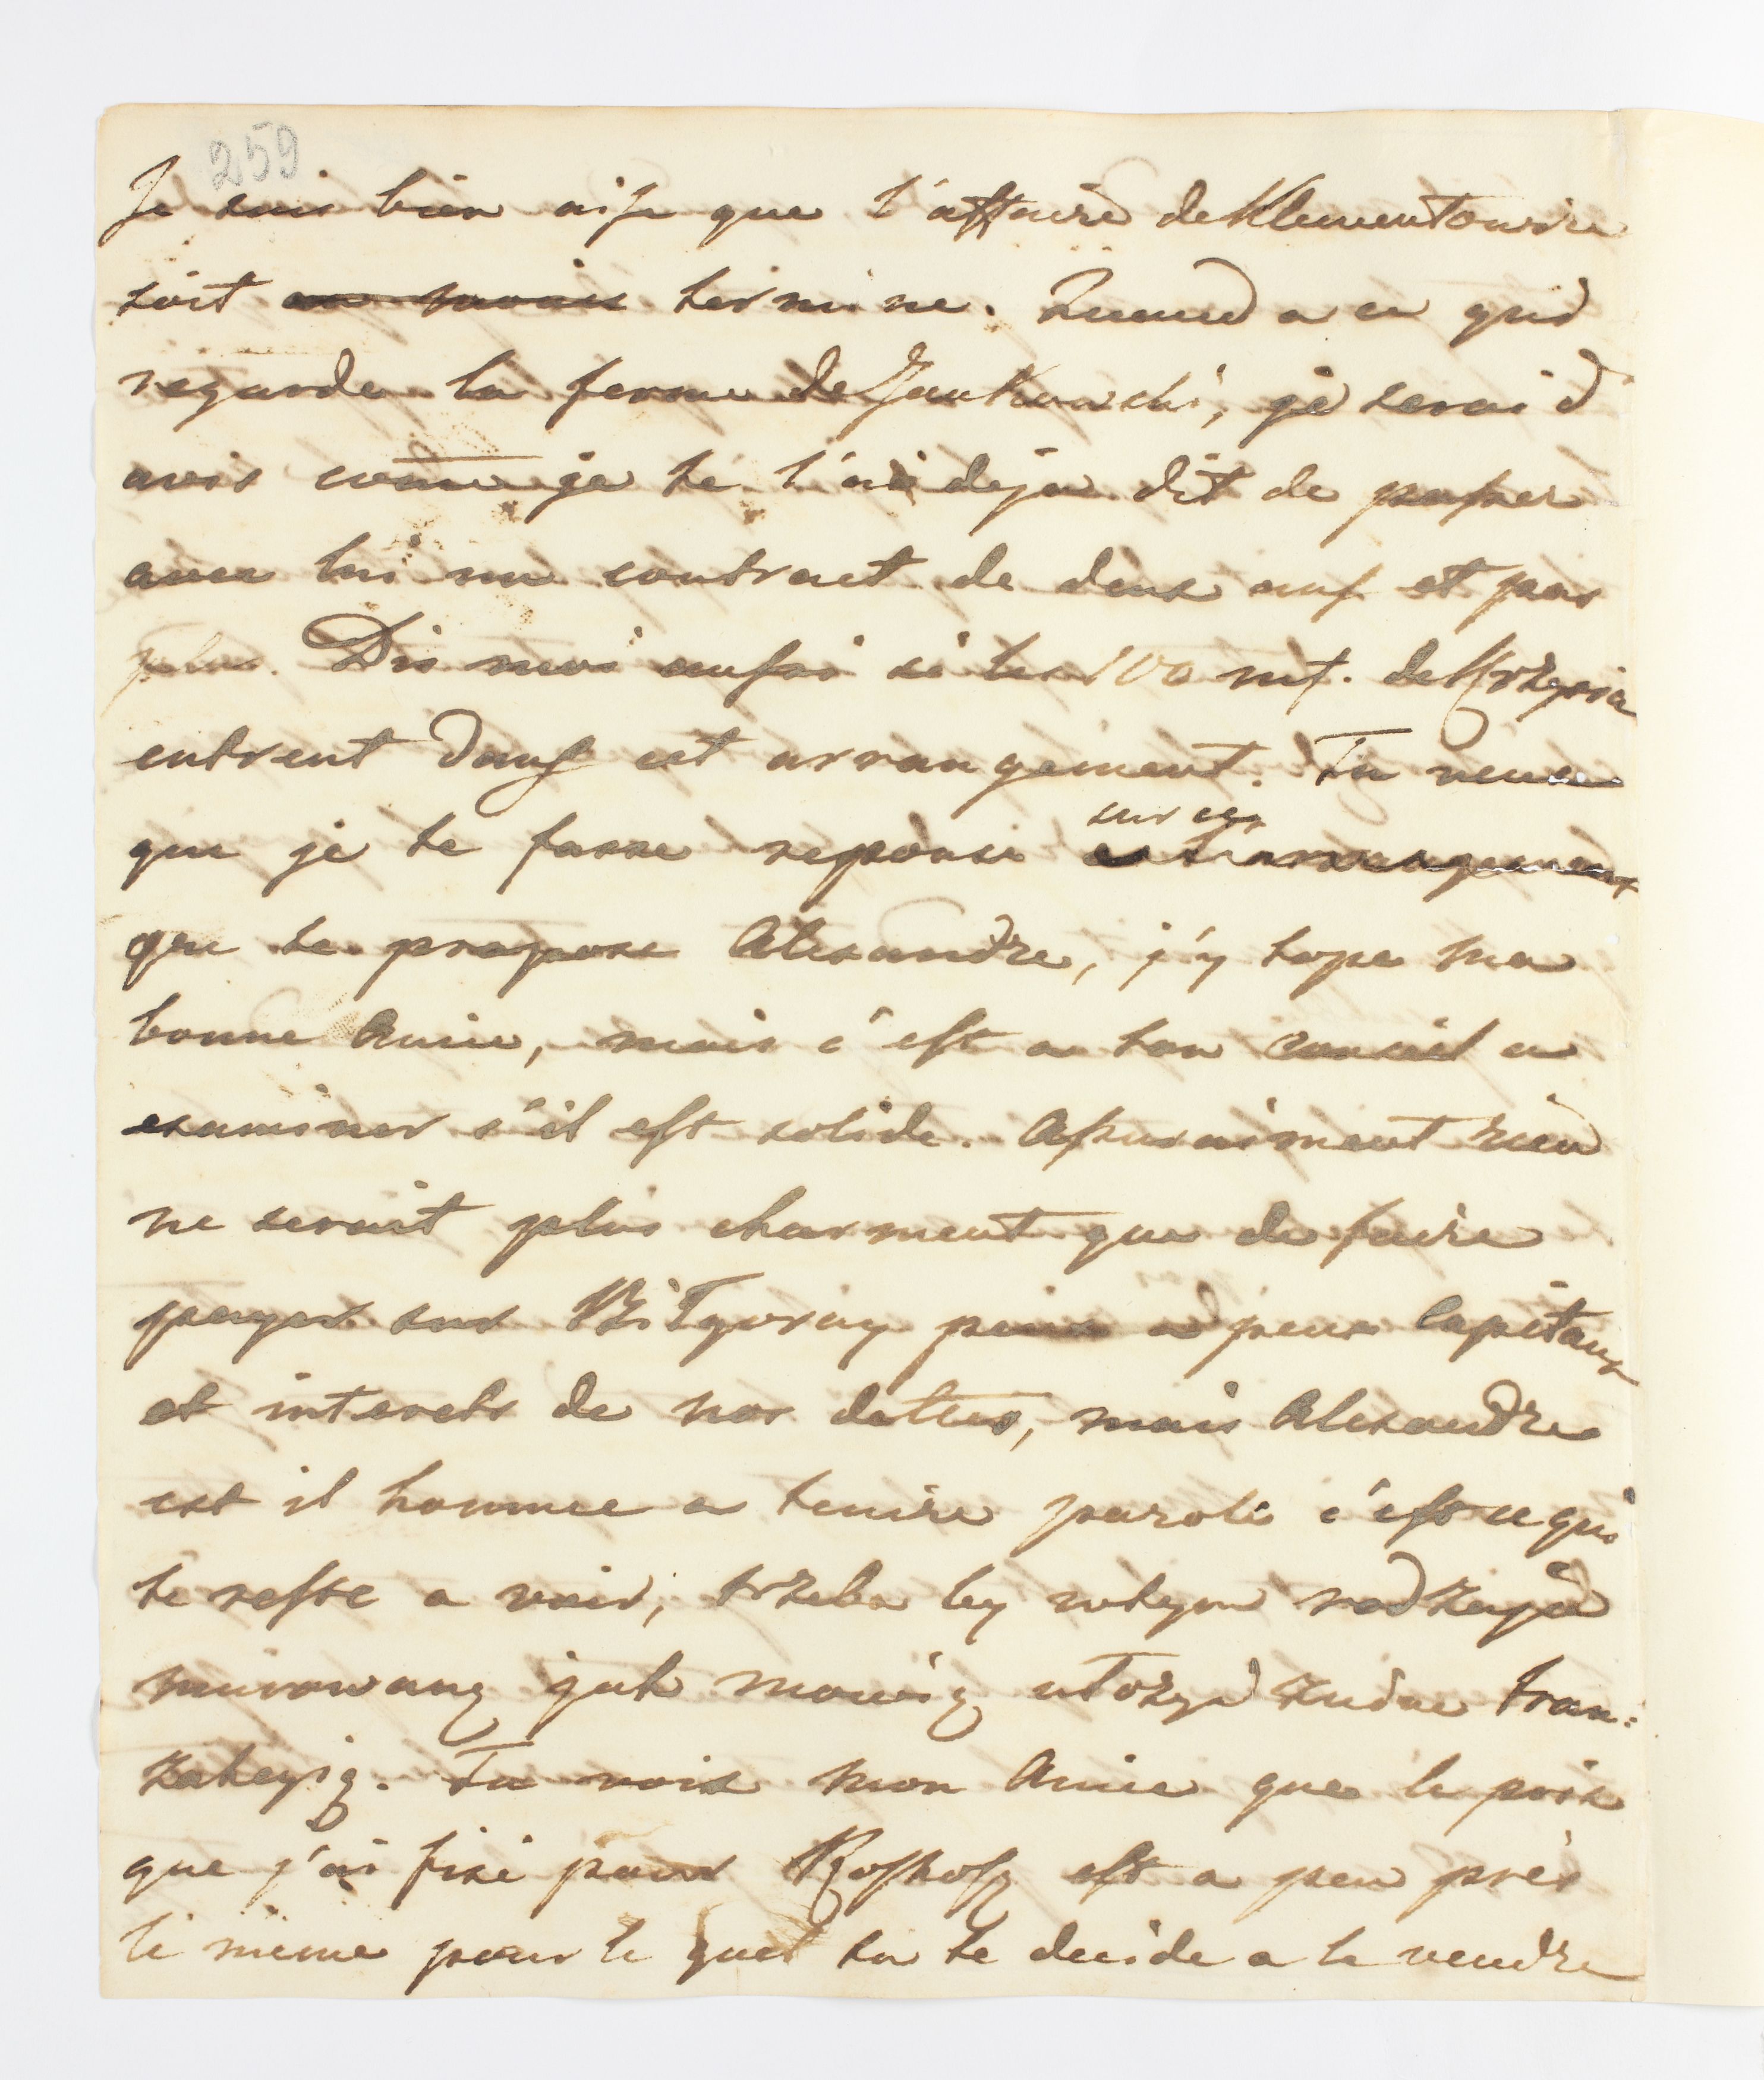 259
Je suis bien aise que l'affaire de Klementowice
soit au moins terminé. Quand a ce qui
regarde la ferme de Jankowski, je serai d
avis come je te l'ai deja dit de passer
avec lui un contract de deux ans et pas
plus. Dis moi aussi si les 100 mf. de
entrent dans cet arrangement. Tu veux
sur ce
que je te fasse reponse cet arrangement
que te propose Alexandre, j'y tope ma
bonne Amie, mais c'est a ton conseil a
examiner s'il est solide. Assuraiment rien
ne serait plus charment que de faire
payer sur Biłgoray peux a peux Capitaux
et interets de nos dettes, mais Alexandre
est il homme a tenire parole c'est ce qui
te reste a voir, trzeba by wtym rodzaju
murowaną jak mowią ułożyć tran:
zakcyią. Tu vois mon Amie que le prix
que j'ai fixé pour est a peu près
le même pour le quel tu te decide a le vendre